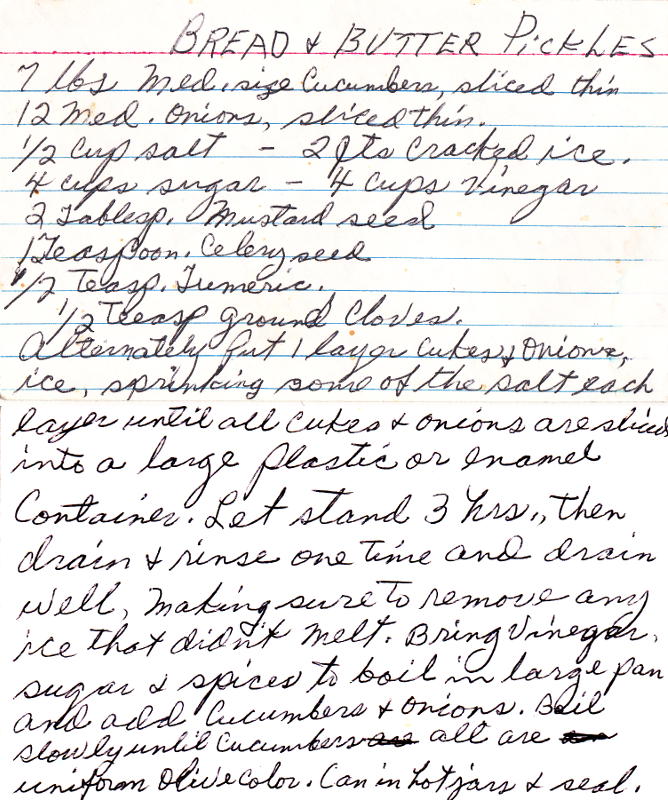 BREAD & BUTTER PICKLES
7 lbs Med. size Cucumbers, sliced thin
12 Med. Onions, sliced thin.
1/2 cup salt - 2 qts cracked ice.
4 cups sugar - 4 cups vinegar
2 Tablesp. Mustard seed
1 Teaspoon. Celery seed
1/2 Teasp. Tumeric.
1/2 Teeasp ground Cloves.
Alternately put 1 layer cukes & onions,
ice, sprinking some of the salt each
layer until all cukes & onions are sliced
into a large plastic or enamel
Container. Let stand 3 hrs., then
drain & rinse one time and drain
well, making sure to remove any
ice that didn't melt. Bring Vinegar,
sugar & spices to boil in large pan
and add Cucumbers & onions. Boil
slowly until Cucumbers all are
uniform Olive color. Can in hot jars & seal.